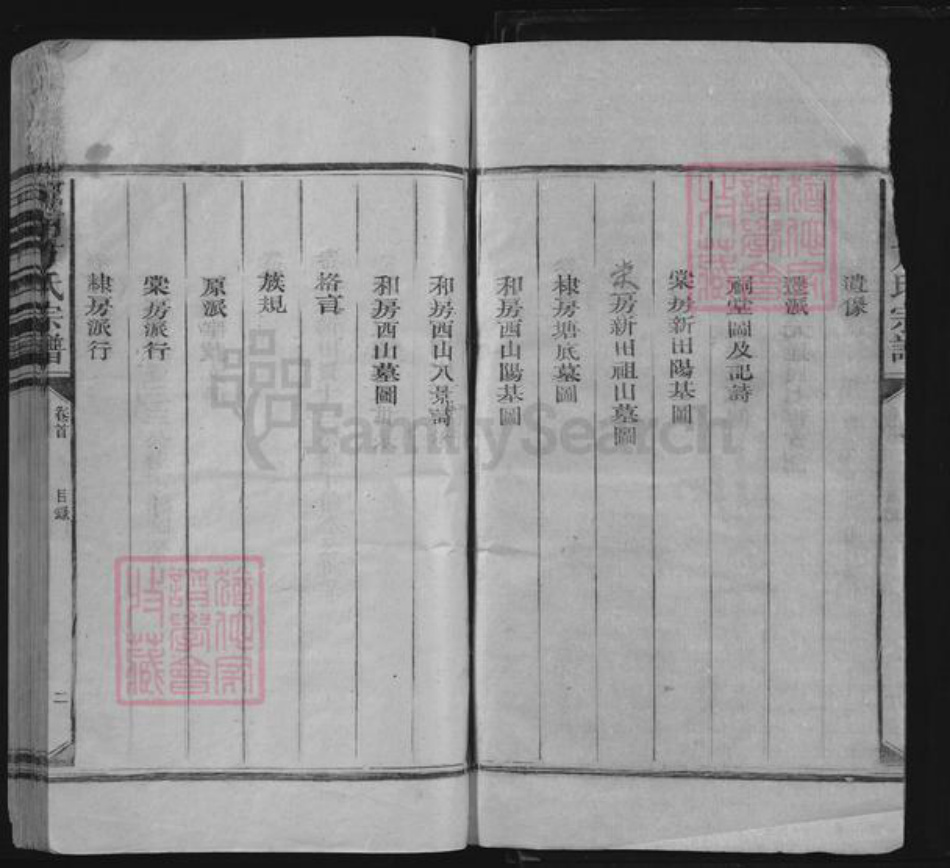 遺像
遷派
祠堂圖及記詩
棠房新田陽基圖
棠房新田祖山墓圖
棣房塘底墓圖
和房西山陽基圖
和房西山八景詩
和房西山墓圖
格言
族規
原派
棠房派行
棣房派行
氏宗譜
卷首
目錄
二
FamilySearch